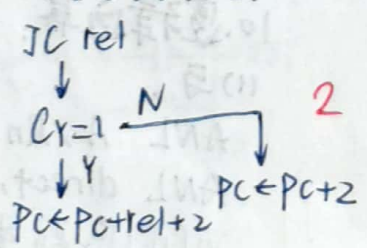 JC rel
Cy=1 N 2
Y
PC←PC+2
PC←PC+rel+2